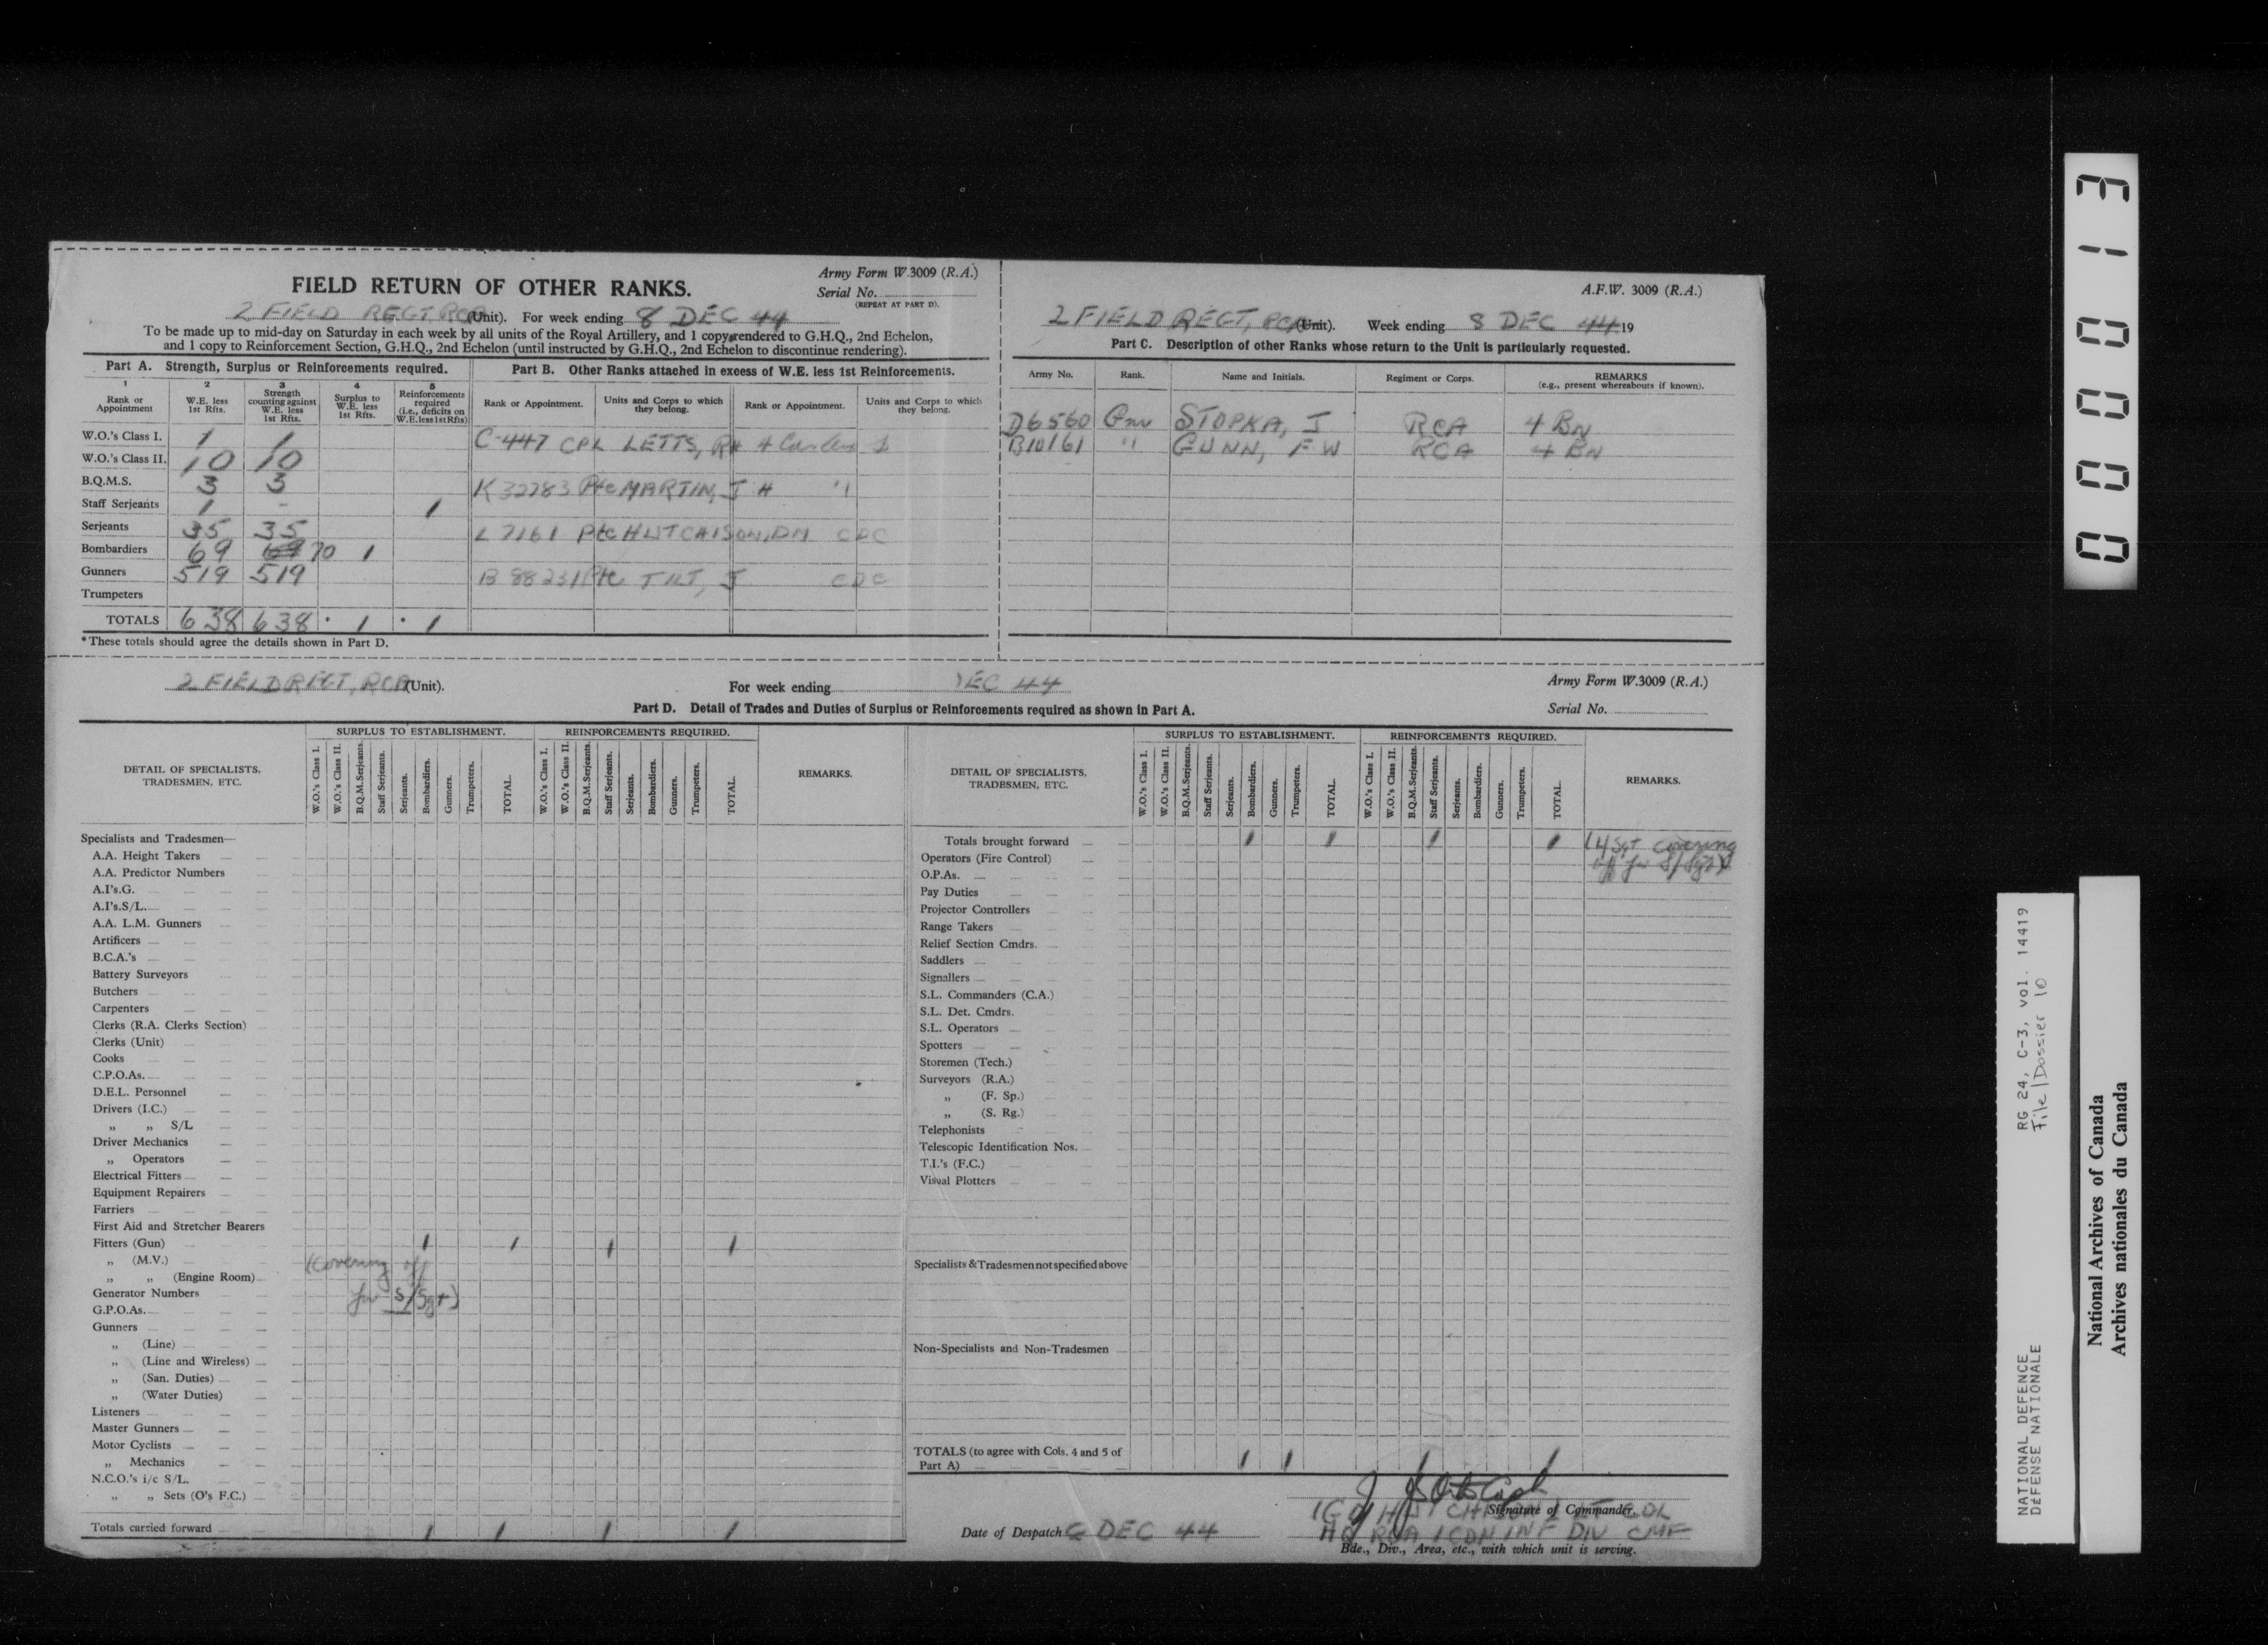 FIELD RETURN OF OTHER RANKS.
Army Form W.3009 (R.A.)
Serial No.
(REPEAT AT PART D).
2 FIELD REGT, RCA (Unit). For week ending 8 DEC 44
To be made up to mid-day on Saturday in each week by all units of the Royal Artillery, and 1 copy rendered to G.H.Q., 2nd Echelon,
and 1 copy to Reinforcement Section, G.H.Q., 2nd Echelon (until instructed by G.H.Q., 2nd Echelon to discontinue rendering).
Part A. Strength, Surplus or Reinforcements required.
1 2 3 4 5
Rank or Appointment
W.E. less 1st Rfts.
Strength counting against W.E. less 1st Rfts.
Surplus to W.E. less 1st Rfts.
Reinforcements required (i.e., deficits on W.E. less 1st Rfts)
W.O.'s Class I. 1 1
W.O.'s Class II. 10 10
B.Q.M.S. 3 3
Staff Serjeants 1 - 1
Serjeants 35 35
Bombardiers 69 70 1
Gunners 519 519
Trumpeters
TOTALS 638 638 • 1 • 1
*These totals should agree the details shown in Part D.
Part B. Other Ranks attached in excess of W.E. less 1st Reinforcements.
Rank or Appointment. Units and Corps to which they belong. Rank or Appointment. Units and Corps to which they belong.
C-447 CPL LETTS, RH 4
K 32283 Pte MARTIN, J H "
L 7161 Pte HUTCHISON, DM CDC
B 88231 Pte TILT, J CDC
A.F.W. 3009 (R.A.)
2 FIELD REGT, RCA (Unit). Week ending 8 DEC 44 19
Part C. Description of other Ranks whose return to the Unit is particularly requested.
Army No. Rank. Name and Initials. Regiment or Corps. REMARKS
(e.g., present whereabouts if known).
D6560 Gnr STOPKA, J RCA 4 BN
B10161 " GUNN, F W RCA 4 BN
2 FIELD REGT, RCA (Unit).
For week ending DEC 44
Army Form W.3009 (R.A.)
Part D. Detail of Trades and Duties of Surplus or Reinforcements required as shown in Part A.
Serial No.
DETAIL OF SPECIALISTS, TRADESMEN, ETC.
SURPLUS TO ESTABLISHMENT.
W.O.'s Class I.
W.O.'s Class II.
B.Q.M.Serjeants.
Staff Serjeants.
Serjeants.
Bombardiers.
Gunners.
Trumpeters.
TOTAL.
REINFORCEMENTS REQUIRED.
W.O.'s Class I.
W.O.'s Class II.
B.Q.M.Serjeants.
Staff Serjeants.
Serjeants.
Bombardiers.
Gunners.
Trumpeters.
TOTAL.
REMARKS.
Specialists and Tradesmen—
A.A. Height Takers
A.A. Predictor Numbers
A.I's.G.
A.I's.S/L.
A.A. L.M. Gunners
Artificers
B.C.A.'s
Battery Surveyors
Butchers
Carpenters
Clerks (R.A. Clerks Section)
Clerks (Unit)
Cooks
C.P.O.As.
D.E.L. Personnel
Drivers (I.C.)
„ „ S/L
Driver Mechanics
„ Operators
Electrical Fitters
Equipment Repairers
Farriers
First Aid and Stretcher Bearers
Fitters (Gun) 1 1 1 1
„ (M.V.) (Covering off
„ „ (Engine Room)
Generator Numbers for S/Sgt)
G.P.O.As.
Gunners
„ (Line)
„ (Line and Wireless)
„ (San. Duties)
„ (Water Duties)
Listeners
Master Gunners
Motor Cyclists
„ Mechanics
N.C.O.'s i/c S/L.
„ „ Sets (O's F.C.)
Totals carried forward 1 1 1 1
DETAIL OF SPECIALISTS, TRADESMEN, ETC.
SURPLUS TO ESTABLISHMENT.
W.O.'s Class I.
W.O.'s Class II.
B.Q.M.Serjeants.
Staff Serjeants.
Serjeants.
Bombardiers.
Gunners.
Trumpeters.
TOTAL.
REINFORCEMENTS REQUIRED.
W.O.'s Class I.
W.O.'s Class II.
B.Q.M.Serjeants.
Staff Serjeants.
Serjeants.
Bombardiers.
Gunners.
Trumpeters.
TOTAL.
REMARKS.
Totals brought forward 1 1 1 1 Sgt covering
off for S/Sgt)
Operators (Fire Control)
O.P.As.
Pay Duties
Projector Controllers
Range Takers
Relief Section Cmdrs.
Saddlers
Signallers
S.L. Commanders (C.A.)
S.L. Det. Cmdrs.
S.L. Operators
Spotters
Storemen (Tech.)
Surveyors (R.A.)
„ (F. Sp.)
„ (S. Rg.)
Telephonists
Telescopic Identification Nos.
T.I.'s (F.C.)
Visual Plotters
Specialists & Tradesmen not specified above
Non-Specialists and Non-Tradesmen
TOTALS (to agree with Cols. 4 and 5 of
Part A) 1 1 1 1
Signature of Commander. COL
Date of Despatch DEC 44
HQ RCA 1 CDN INF DIV CMF
Bde., Div., Area, etc., with which unit is serving.
000013
RG 24, C-3, vol. 14419
File/Dossier 10
NATIONAL DEFENCE
DÉFENSE NATIONALE
National Archives of Canada
Archives nationales du Canada